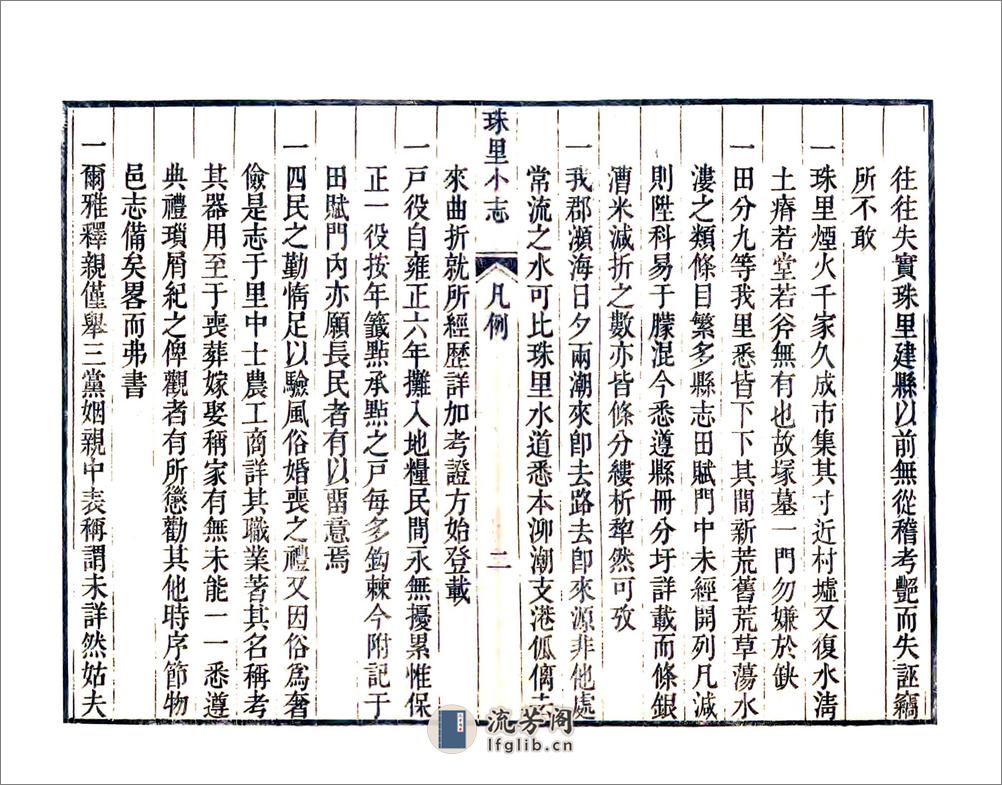 往往失實珠里建縣以前無從稽考艷而失誣竊
所不敢
一珠里煙火千家久成市集其寸近村墟又復水淸
土瘠若堂若斧無有也故塚墓一門勿嫌於缺
一田分九等我里悉皆下下其間新荒舊荒草蕩水
漊之類條目繁多縣志田賦門中未經開列凡減
則陞科易于朦混今悉遵縣冊分圩詳載而條銀
漕米減折之數亦皆條分縷析犂然可攷
一我郡瀕海日夕兩潮來卽去路去卽來源非他處
常流之水可比珠里水道悉本泖潮支港佤僪去
來曲折就所經歷詳加考證方始登載
一戸役自雍正六年攤入地糧民間永無擾累惟保
正一役按年籤點承點之戸每多鈎棘今附記于
田賦門內亦願長民者有以畱意焉
一四民之勤惰足以驗風俗婚喪之禮又因俗爲奢
儉是志于里中士農工商詳其職業著其名稱考
其器用至于喪葬嫁娶稱家有無未能一一悉遵
典禮瑣屑紀之俾觀者有所懲勸其他時序節物
邑志備矣畧而弗書
一爾雅釋親僅舉三黨姻親中表稱謂未詳然姑夫
珠里小志
凡例
二
流芳阁
lfglib.cn